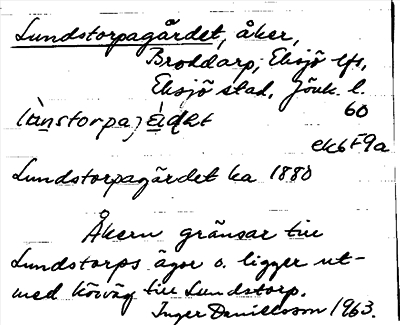 Lundstorpagärdet, åker,
Broddarp, Eksjö lfs,
Eksjö stad, Jönk. l.
60
ek6F9a
Lundstorpagärdet ka 1880
Åkern gränsar till
Lundstorps ägor o. ligger ut-
med körväg till Lundstorp.
Inger Danielsson 1963.